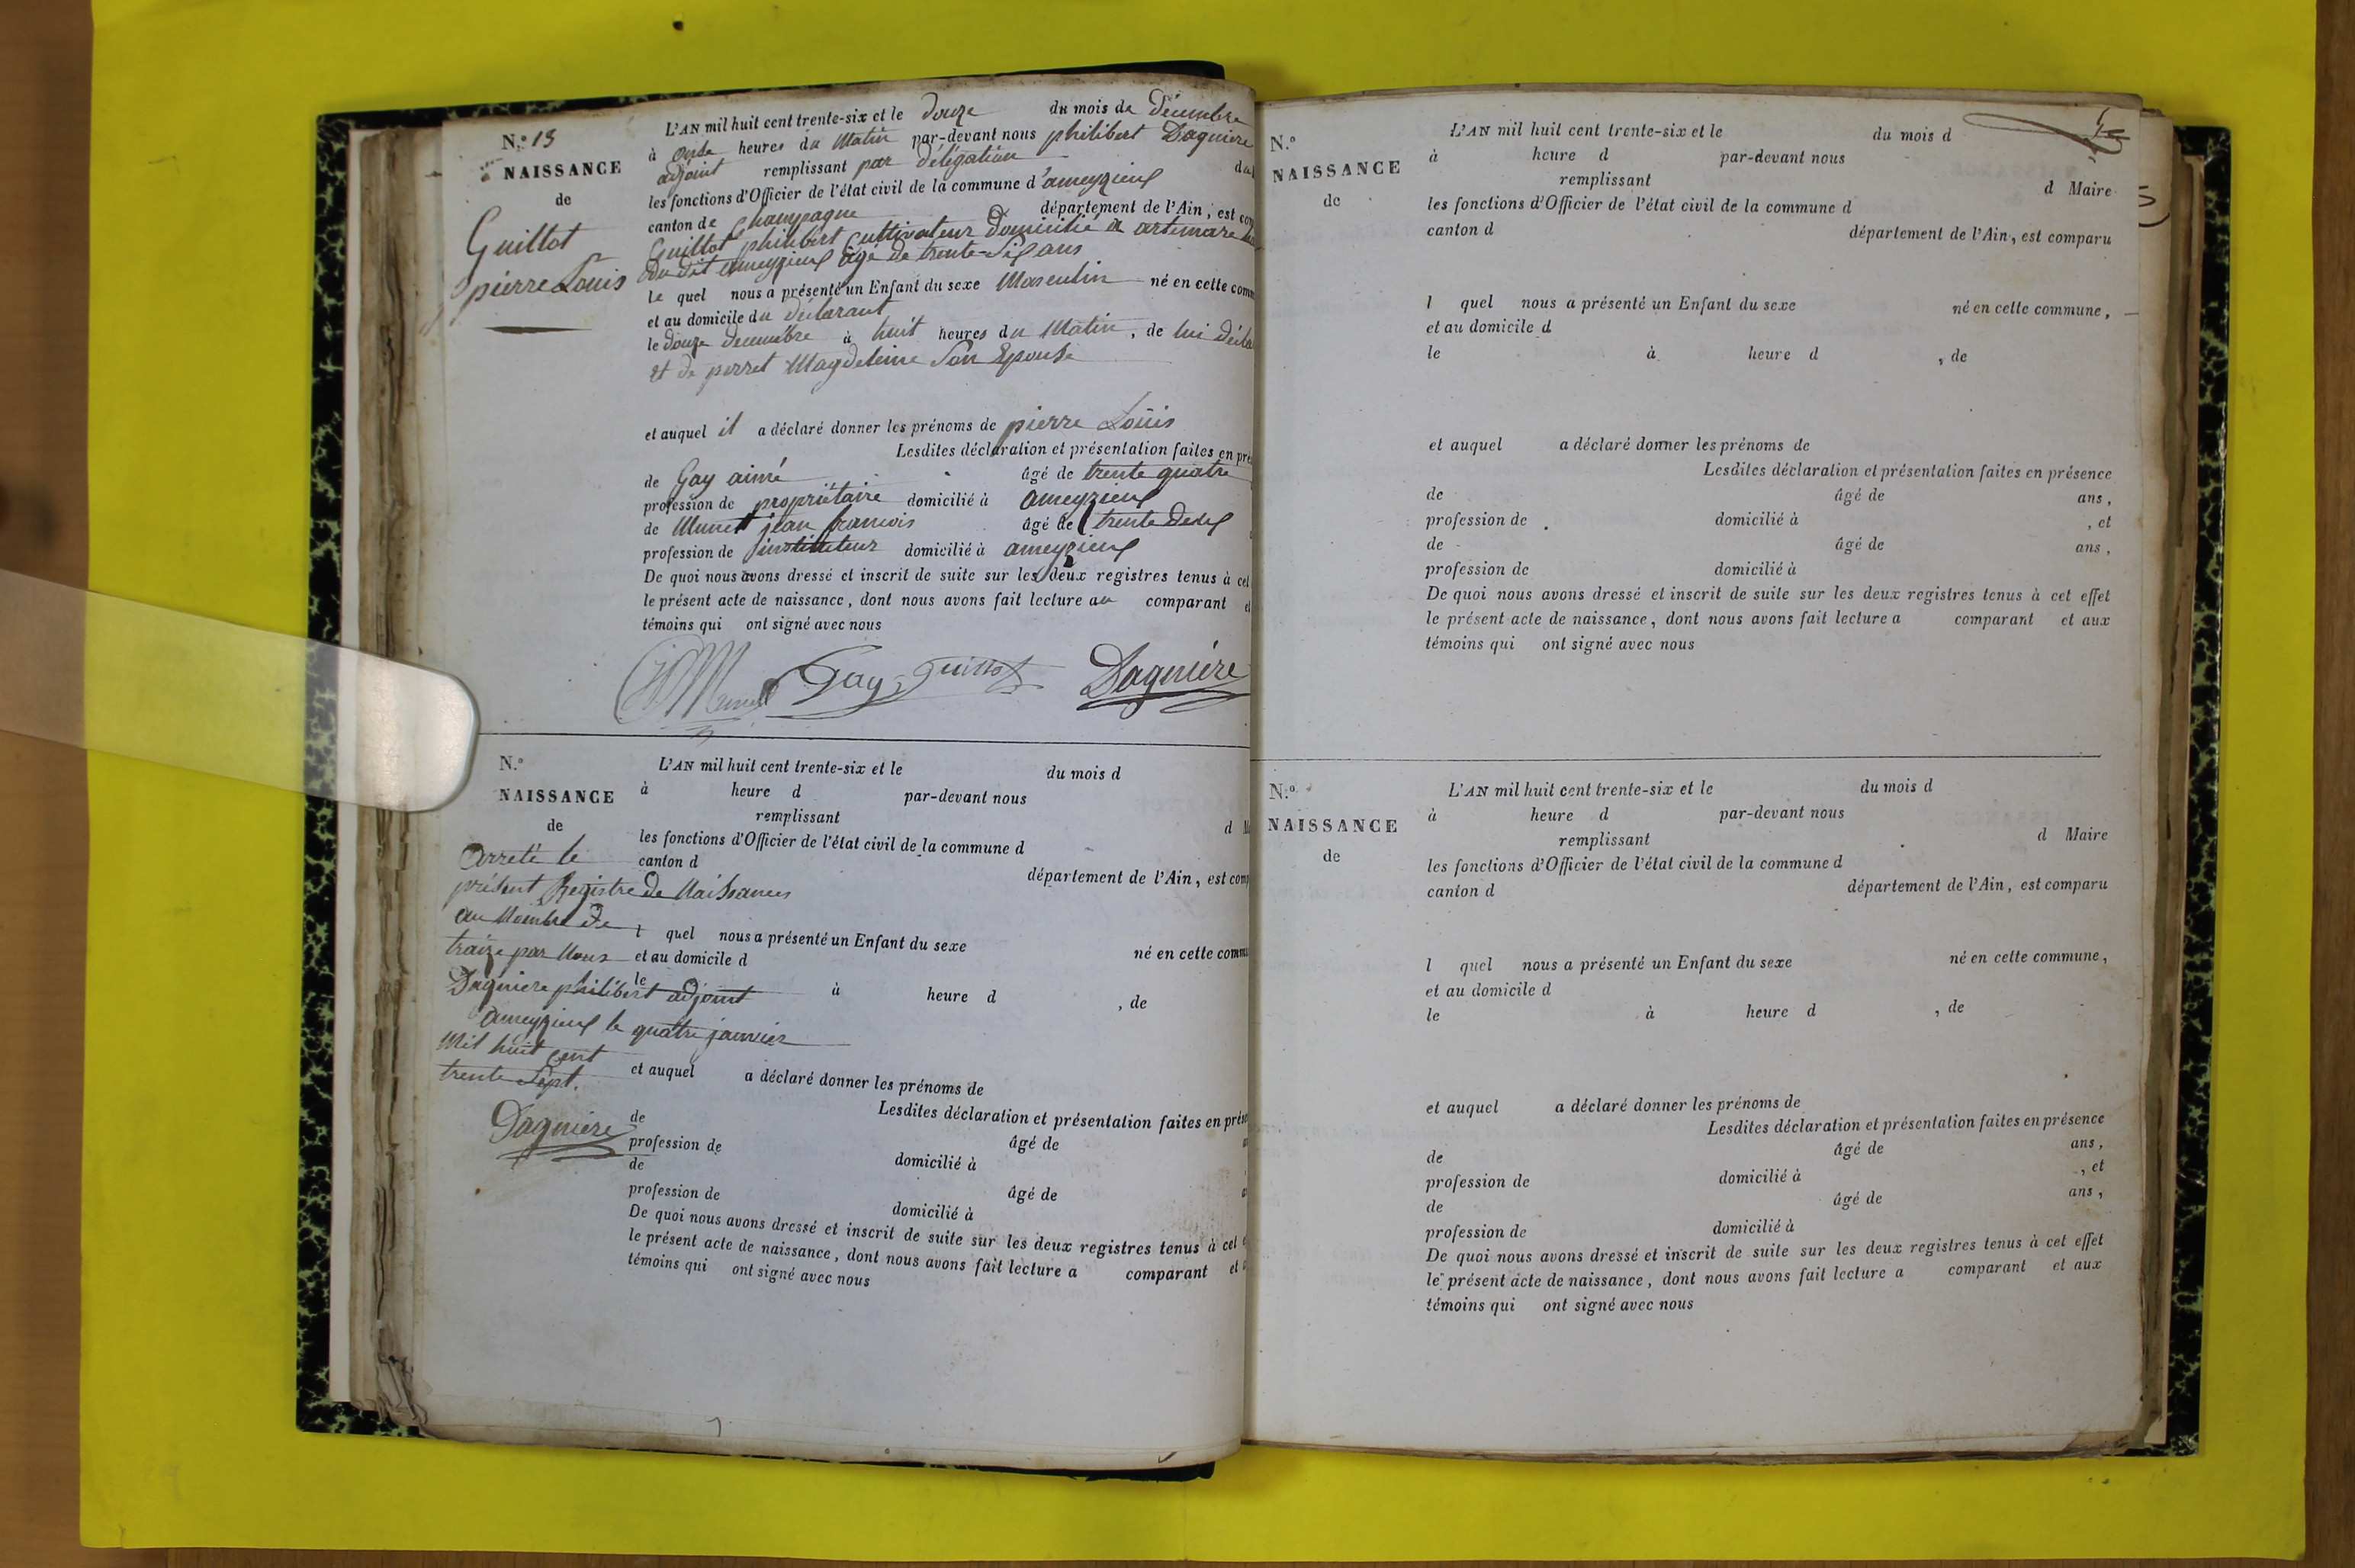 N.º 13
NAISSANCE
de
Guillot
pierre Louis
L'AN mil huit cent trente-six et le douze du mois de décembre
à onze heures du Matin par-devant nous philibert Dagniere
adjoint remplissant par délégation du
les fonctions d'Officier de l'état civil de la commune d'ameyzieux
canton de Champagne département de l'Ain, est com
Guillot philibert Cultivateur Domicilié à artemare
du dit ameyzieux âgé de trente-Six ans
le quel nous a présenté un Enfant du sexe Masculin né en cette comm
et au domicile du déclarant
le douze decembre à huit heures du Matin, de lui décla
et de perret Magdeleine Son Epouse
et auquel il a déclaré donner les prénoms de pierre Louis
Lesdites déclaration et présentation faites en pré
de Gay aimé âgé de trente quatre
profession de propriétaire domicilié à ameyzieux
de Munet jean francois âgé de trente Deux
profession de instituteur domicilié à ameyzieux
De quoi nous avons dressé et inscrit de suite sur les deux registres tenus à cet
le présent acte de naissance, dont nous avons fait lecture au comparant et
témoins qui ont signé avec nous
Gay Guillot Dagniére
N.º
NAISSANCE
de
Arreté le
présent Registre de Naissances
au Nombre de
traize par Nous
Dagniere philibert adjoint
ameyzieux le quatre janvier
Mil huit cent
trente Sept.
Dagniére
L'AN mil huit cent trente-six et le du mois d
à heure d par-devant nous
remplissant d M
les fonctions d'Officier de l'état civil de la commune d
canton d département de l'Ain, est comp
l quel nous a présenté un Enfant du sexe né en cette commu
et au domicile d
le à heure d , de
et auquel a déclaré donner les prénoms de
Lesdites déclaration et présentation faites en prése
de âgé de
profession de domicilié à
de âgé de
profession de domicilié à
De quoi nous avons dressé et inscrit de suite sur les deux registres tenus à cet
le présent acte de naissance, dont nous avons fait lecture a comparant et
témoins qui ont signé avec nous
N.º
NAISSANCE
de
L'AN mil huit cent trente-six et le du mois d
à heure d par-devant nous
remplissant d Maire
les fonctions d'Officier de l'état civil de la commune d
canton d département de l'Ain, est comparu
l quel nous a présenté un Enfant du sexe né en cette commune,
et au domicile d
le à heure d , de
et auquel a déclaré donner les prénoms de
Lesdites déclaration et présentation faites en présence
de âgé de ans,
profession de domicilié à , et
de âgé de ans,
profession de domicilié à
De quoi nous avons dressé et inscrit de suite sur les deux registres tenus à cet effet
le présent acte de naissance, dont nous avons fait lecture a comparant et aux
témoins qui ont signé avec nous
N.º
NAISSANCE
de
L'AN mil huit cent trente-six et le du mois d
à heure d par-devant nous
remplissant d Maire
les fonctions d'Officier de l'état civil de la commune d
canton d département de l'Ain, est comparu
l quel nous a présenté un Enfant du sexe né en cette commune,
et au domicile d
le à heure d , de
et auquel a déclaré donner les prénoms de
Lesdites déclaration et présentation faites en présence
de âgé de ans,
profession de domicilié à , et
de âgé de ans,
profession de domicilié à
De quoi nous avons dressé et inscrit de suite sur les deux registres tenus à cet effet
le présent acte de naissance, dont nous avons fait lecture a comparant et aux
témoins qui ont signé avec nous